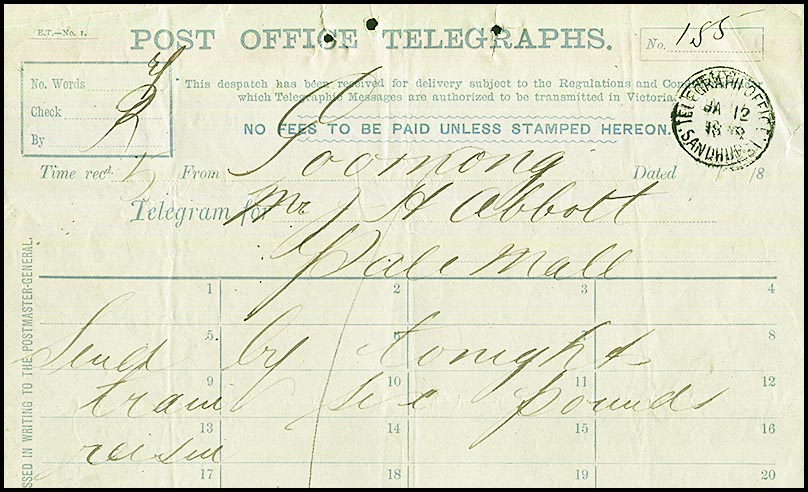 E.T.—No. 1.
POST OFFICE TELEGRAPHS.
No. 155
No. Words
Check
By
This despatch has been received for delivery subject to the Regulations and
which Telegraphic Messages are authorized to be transmitted in Victoria.
NO FEES TO BE PAID UNLESS STAMPED HEREON.
TELEGRAPH OFFICE
JA 12
SANDHURST
Time recd. From Dated /8
Telegram for Mr J H Abbott
Pale Mall
1 2 3 4
5 7 8
Send by tonights
9 10 11 12
train six pounds
13 14 15 16
resin
17 18 19 20
SSED IN WRITING TO THE POSTMASTER-GENERAL.